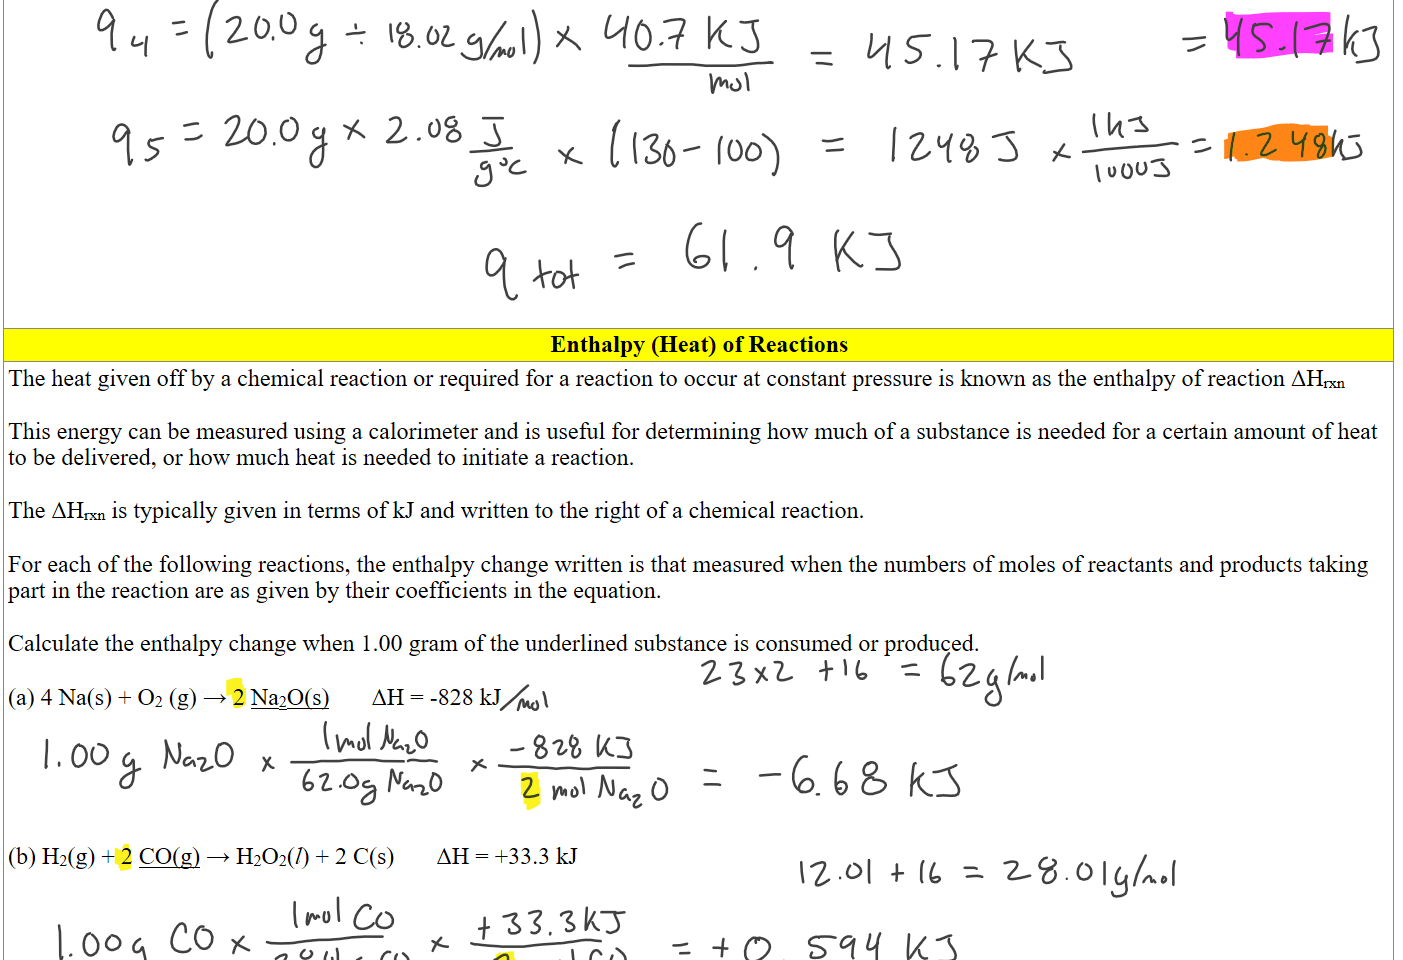 q₄ = (20.0 g ÷ 18.02 g/mol) × 40.7 KJ/mol = 45.17 KJ = 45.17 kJ
q₅ = 20.0 g × 2.08 J/g°C × (130 - 100) = 1248 J × 1kJ/1000J = 1.248 kJ
q tot = 61.9 KJ
Enthalpy (Heat) of Reactions
The heat given off by a chemical reaction or required for a reaction to occur at constant pressure is known as the enthalpy of reaction ΔHrxn
This energy can be measured using a calorimeter and is useful for determining how much of a substance is needed for a certain amount of heat
to be delivered, or how much heat is needed to initiate a reaction.
The ΔHrxn is typically given in terms of kJ and written to the right of a chemical reaction.
For each of the following reactions, the enthalpy change written is that measured when the numbers of moles of reactants and products taking
part in the reaction are as given by their coefficients in the equation.
Calculate the enthalpy change when 1.00 gram of the underlined substance is consumed or produced.
23×2 +16 = 62g/mol
(a) 4 Na(s) + O₂ (g) → 2 Na₂O(s) ΔH = -828 kJ/mol
1.00 g Na₂O × 1 mol Na₂O/62.0g Na₂O × -828 KJ/2 mol Na₂O = -6.68 KJ
(b) H₂(g) + 2 CO(g) → H₂O₂(l) + 2 C(s) ΔH = +33.3 kJ
12.01 + 16 = 28.01g/mol
1.00g CO × 1 mol CO × +33.3 KJ = +0.594 KJ